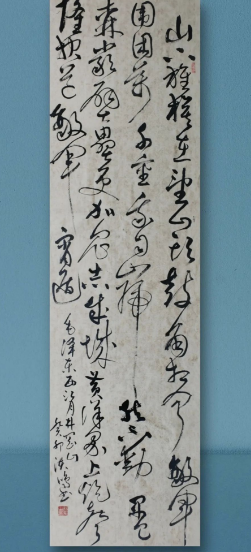 山下旌旗在望山头鼓角相闻敌军
围困万千重我自岿然不动早已
森严壁垒更加众志成城黄洋界上炮声
隆报道敌军宵遁
毛泽东西江月井冈山
癸卯